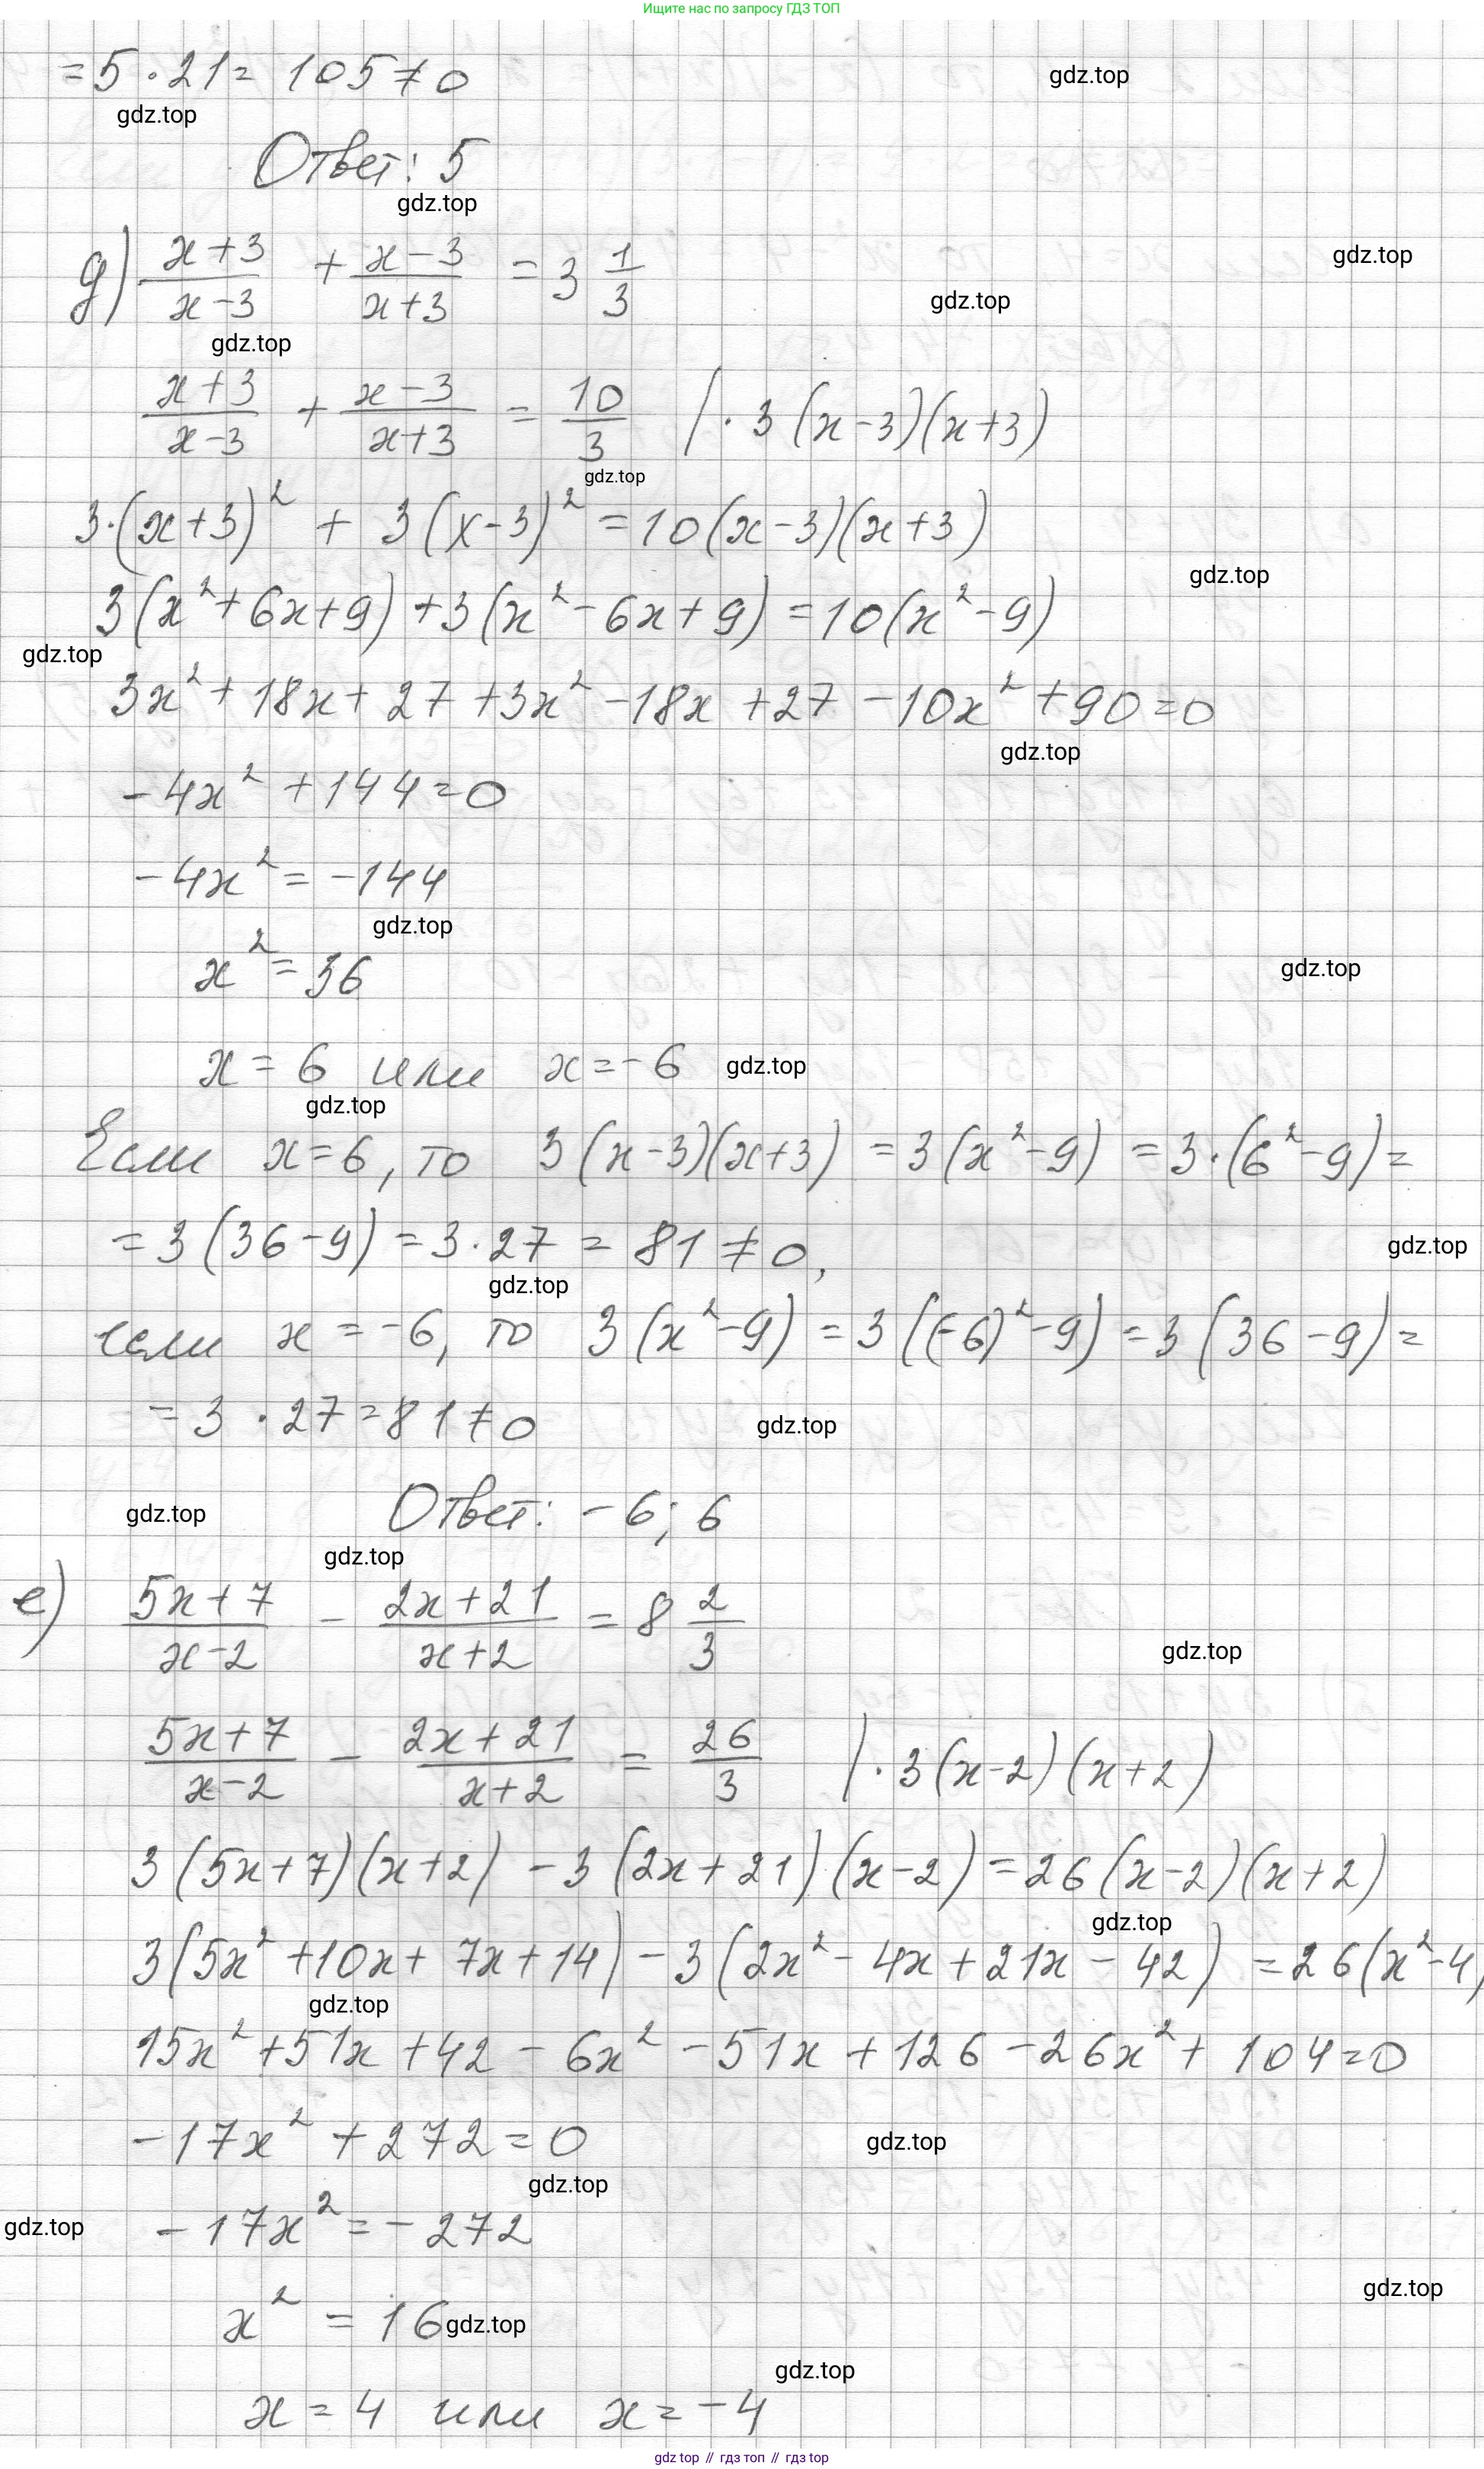 Ищите нас по запросу ГДЗ ТОП
= 5 · 21 = 105 ≠ 0
gdz.top
gdz.top
Ответ: 5
gdz.top
д) (x+3)/(x-3) + (x-3)/(x+3) = 3 1/3
gdz.top
gdz.top
gdz.top
(x+3)/(x-3) + (x-3)/(x+3) = 10/3 | · 3(x-3)(x+3)
gdz.top
3·(x+3)² + 3(x-3)² = 10(x-3)(x+3)
gdz.top
3(x²+6x+9)+3(x²-6x+9)=10(x²-9)
gdz.top
3x²+18x+27+3x²-18x+27-10x²+90=0
gdz.top
-4x²+144=0
-4x²=-144
gdz.top
x²=36
gdz.top
x=6 или x=-6
gdz.top
gdz.top
Если x=6, то 3(x-3)(x+3)=3(x²-9)=3·(6²-9)=
=3(36-9)=3·27=81≠0,
gdz.top
gdz.top
если x=-6, то 3(x²-9)=3((-6)²-9)=3(36-9)=
=3·27=81≠0
gdz.top
Ответ: -6; 6
gdz.top
gdz.top
е) (5x+7)/(x-2) - (2x+21)/(x+2) = 8 2/3
gdz.top
(5x+7)/(x-2) - (2x+21)/(x+2) = 26/3 | · 3(x-2)(x+2)
3(5x+7)(x+2)-3(2x+21)(x-2)=26(x-2)(x+2)
gdz.top
3(5x²+10x+7x+14)-3(2x²-4x+21x-42)=26(x²-4)
gdz.top
15x²+51x+42-6x²-51x+126-26x²+104=0
-17x²+272=0
gdz.top
gdz.top
-17x²=-272
gdz.top
gdz.top
x²=16
gdz.top
gdz.top
x=4 или x=-4
gdz top // гдз топ // гдз top